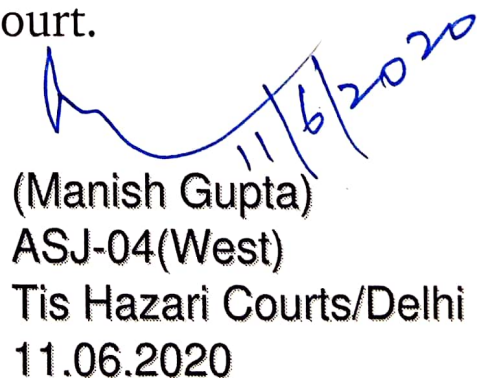 ourt.
11/6/2020
(Manish Gupta)
ASJ-04(West)
Tis Hazari Courts/Delhi
11.06.2020